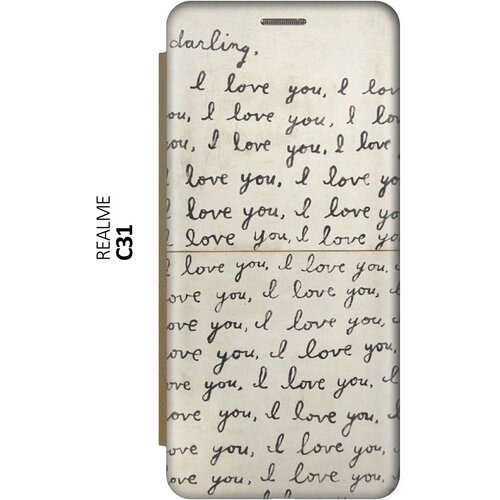 REALME
C31
darling,
I love you, I lov
ou, I love you, I lov
ou, I love you, I love
love you, I love yo
love you, I love yo
love you, I love yo
love you, I love you,
ove you, I love you,
ove you, I love you,
ove you, I love you,
ove you, I love you,
love you, I love you,
ove you, I love you,
ove you, I love you,